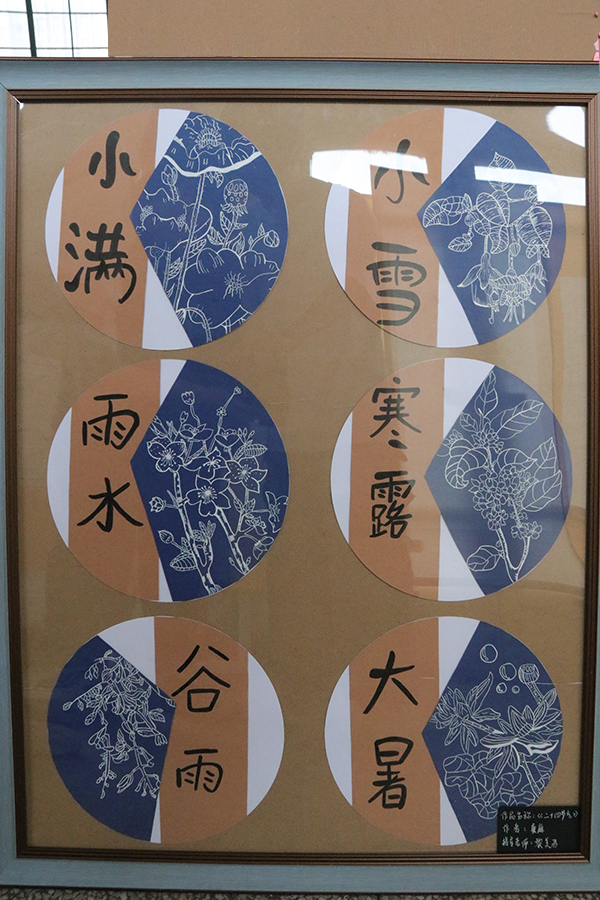 小满
小雪
雨水
寒露
谷雨
大暑
作品名称:《二十四节气》
作者:
指导老师: